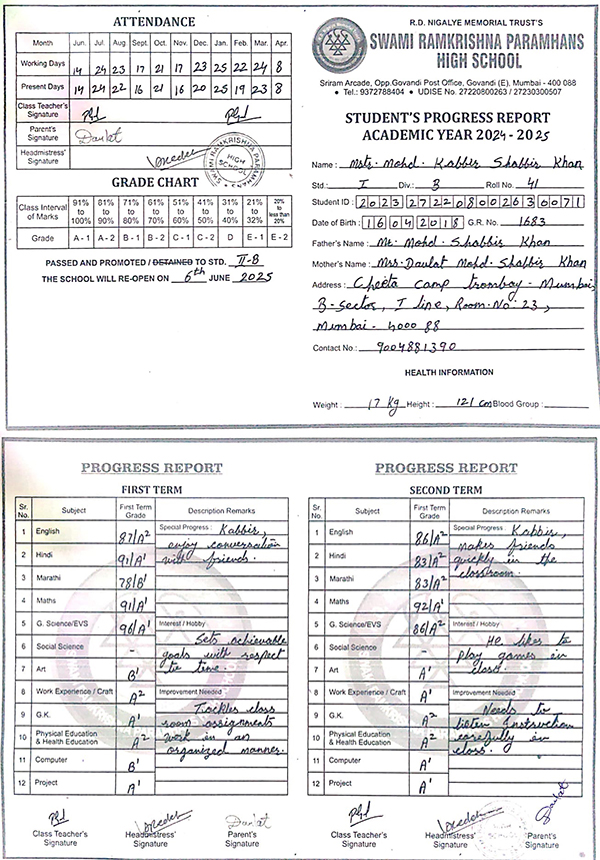 ATTENDANCE
Month Jun. Jul. Aug Sept. Oct. Nov. Dec. Jan. Feb. Mar. Apr.
Working Days 14 24 23 17 21 17 23 25 22 24 8
Present Days 14 24 22 16 21 16 20 25 19 23 8
Class Teacher's Signature
Parent's Signature Daulat
Headmistress' Signature
SWAMI RAMKRISHNA PARAMHANS HIGH SCHOOL
GRADE CHART
Class Interval of Marks 91% to 100% 81% to 90% 71% to 80% 61% to 70% 51% to 60% 41% to 50% 31% to 40% 21% to 32% 20% to less than 20%
Grade A - 1 A - 2 B - 1 B - 2 C - 1 C - 2 D E - 1 E - 2
PASSED AND PROMOTED / DETAINED TO STD. II-B
THE SCHOOL WILL RE-OPEN ON 6th JUNE 2025
R.D. NIGALYE MEMORIAL TRUST'S
SWAMI RAMKRISHNA PARAMHANS
HIGH SCHOOL
Sriram Arcade, Opp.Govandi Post Office, Govandi (E), Mumbai - 400 088
• Tel.: 9372788404 • UDISE No. 27220800263 / 27230300507
STUDENT'S PROGRESS REPORT
ACADEMIC YEAR 2024 - 2025
Name : Mstr. Mohd. Kabbir Shabbir Khan
Std.: I Div.: B Roll No. 41
Student ID : 2023272208002630071
Date of Birth : 16042018 G.R. No. 1683
Father's Name : Mr. Mohd. Shabbir Khan
Mother's Name : Mrs. Daulat Mohd. Shabbir Khan
Address : Cheeta camp trombay - Mumbai,
B-Sector, I line, Room-No. 23,
Mumbai - 4000 88
Contact No : 9004881390
HEALTH INFORMATION
Weight : 17 kg Height : 121 cm Blood Group :
PROGRESS REPORT
FIRST TERM
Sr. No. Subject First Term Grade Description Remarks
1 English 87/A2 Special Progress : Kabbir,
enjoy conversation
2 Hindi 91/A1 with friends.
3 Marathi 78/B1
4 Maths 91/A1
5 G. Science/EVS 96/A1 Interest / Hobby
Sets achievable
6 Social Science - goals with respect
7 Art B1 to time.
8 Work Experience / Craft A2 Improvement Needed
Tackles class
9 G.K. A1 room assignments
10 Physical Education & Health Education A2 work in an
organized manner.
11 Computer B1
12 Project A1
Class Teacher's Signature
Headmistress' Signature
Daulat
Parent's Signature
PROGRESS REPORT
SECOND TERM
Sr. No. Subject First Term Grade Description Remarks
1 English 86/A2 Special Progress : Kabbir,
makes friends
2 Hindi 83/A2 quickly in the
classroom.
3 Marathi 83/A2
4 Maths 92/A1
5 G. Science/EVS 86/A2 Interest / Hobby
He likes to
6 Social Science - play games in
7 Art A1 class.
8 Work Experience / Craft A1 Improvement Needed
Needs to
9 G.K. A2 listen Instruction
10 Physical Education & Health Education A2 carefully in
class.
11 Computer A1
12 Project A1
Class Teacher's Signature
Headmistress' Signature
Daulat
Parent's Signature